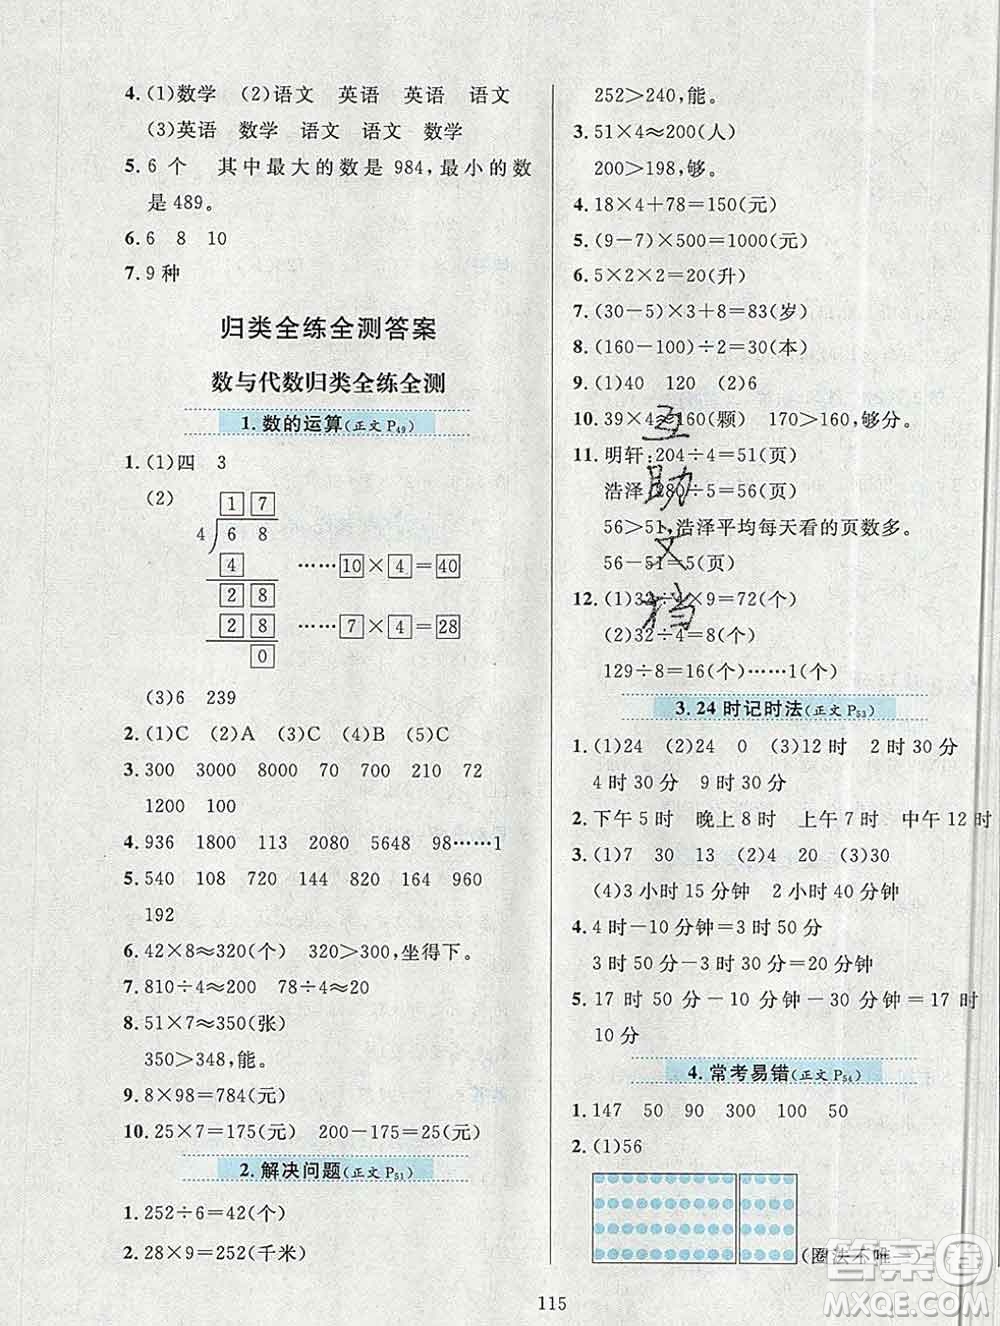 4. (1)数学 (2)语文 英语 英语 语文
(3)英语 数学 语文 语文 数学
5. 6 个 其中最大的数是 984,最小的数
是 489。
6. 6 8 10
7. 9 种
归类全练全测答案
数与代数归类全练全测
1. 数的运算(正文 P49)
1. (1)四 3
(2)
17
4 68
4 ……10×4=40
28
28 ……7×4=28
0
(3)6 239
2. (1)C (2)A (3)C (4)B (5)C
3. 300 3000 8000 720 1000 420
1200 100
4. 936 1800 113 2080 5648 98……1
5. 540 108 720 560 164 960
192
6. 42×8≈320(个) 320>300,坐得下。
7. 810÷4≈200 78÷4≈20
8. 51×7≈350(张)
350>348,能。
9. 8×98≈800(米)
10. 25×7=175(元) 200-175=25(元)
2. 解决问题(正文 P51)
1. 252÷6=42(个)
2. 28×9=252(千米)
252>240,能。
3. 51×4≈200(人)
200>198,够。
4. 18×4+78=150(元)
5. (9-7)×500=1000(元)
6. 5×2×2=20(升)
7. (30-5)×3+8=83(岁)
8. (160-100)÷2=30(本)
9. (1)40 120 (2)6
10. 39×4≈160(颗) 170>160,够分。
11. 明轩:204÷4=51(页)
浩泽:280÷5=56(页)
56>51,浩泽平均每天看的页数多。
56-51=5(页)
12. (1)32÷4×9=72(个)
(2)32÷4=8(个)
129÷8=16(个)……1(个)
3. 24 时记时法(正文 P53)
1. (1)24 (2)24 0 (3)12 时 2 时 30 分
4 时 30 分 9 时 30 分
2. 下午 5 时 晚上 8 时 上午 7 时 中午 12 时
3. (1)7 30 13 (2)4 20 (3)30
(4)3 小时 15 分钟 2 小时 40 分钟
4. 4 时-10 分钟=3 时 50 分
3 时 50 分-2 时=1 时 50 分
5. 17 时 50 分-10 分钟-30 分钟=17 时
10 分
4. 常考易错(正文 P54)
1. 147 50 90 300 100 50
2. (1)56
(圈法不唯一
115
互助文档
答案圈
MXQE.COM